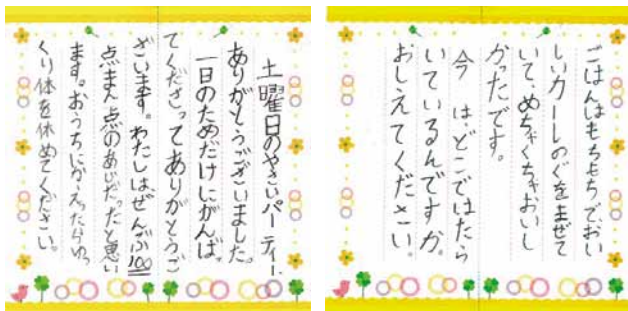 土曜日のやさいパーティー、
ありがとうございました。
一日のためだけにがんば
てくださってありがとうご
ざいます。わたしは、ぜんぶ100
点まん点のあじだったと思い
ます。おうちにかえったらゆっ
くり体を休めてください。
ごはんはもちもちでおい
しいカレーのぐをまぜて
いて、めちゃくちゃおいし
かったです。
今は、どこではたら
いているんですか。
おしえてください。